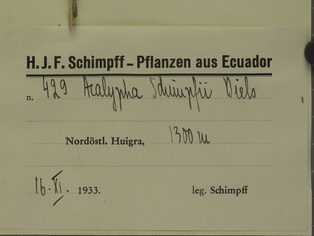 H.J.F. Schimpff – Pflanzen aus Ecuador
n. 429 Acalypha Schimpffii Diels
Nordöstl. Huigra, 1300 m
16. XI. 1933. leg. Schimpff
1